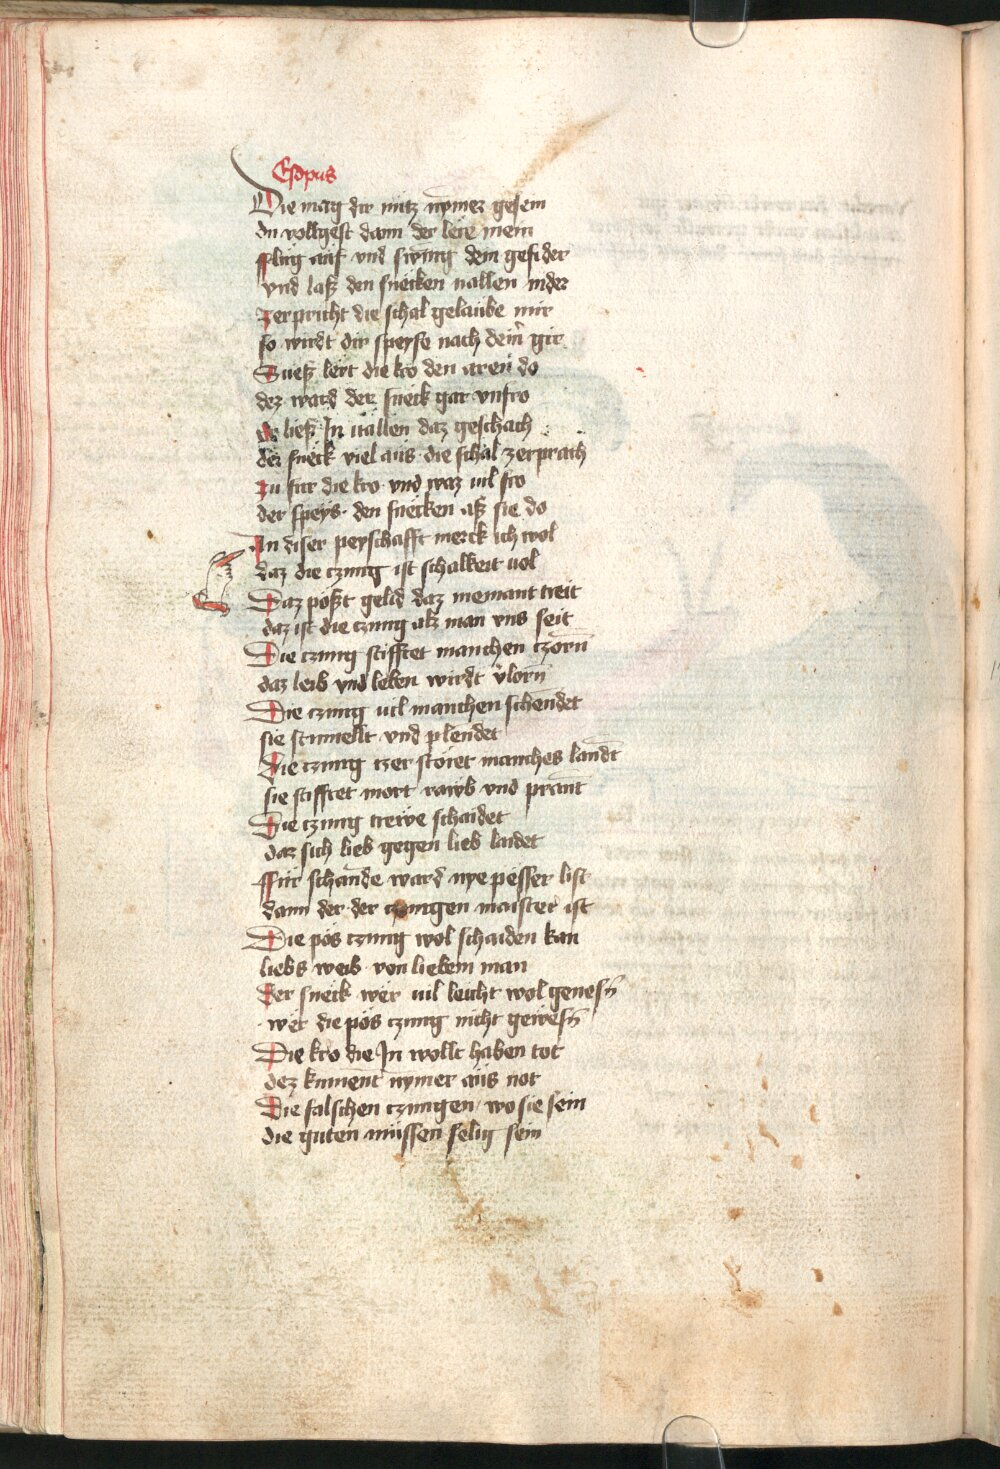 Esopus
Die mag dir nutz nymer gesein
du vollgest dann der lere mein
fflug auf vnd swing dein gefider
vnd laß den sneken uallen nider
zerpricht die schal gelaube mir
so wirdt dir speyse nach dein̄ gir
Sueß lert die kro den aren do
dez ward der sneck gar vnfro
er ließ In uallen daz geschach
der sneck viel aus die schal zerprach
zu fur die kro vnd waz uil fro
der speys den snecken aß sie do
In diser peyschafft merck ich wol
daz die czung ist schalkeit uol
Daz pößt gelid daz niemant treit
daz ist die czung alz man vns seit
Die czung stifftet manchen czorn̄
daz leib vnd leben wirdt v̄lorn̄
Die czung uil manchen schendet
sie stummelt vnd plendet
Die czung czerstöret manches landt
sie stifftet mort rawb vnd prant
Die czung trewe schaidet
daz sich lieb gegen lieb laidet
ffür schande ward nye pesser list
dann der der czungen maister ist
Die pös czung wol schaiden kan
liebs weib von liebem man
Der sneck wer uil leicht wol genesn̄
wer die pös czung nicht gewesn̄
Die kro die In wollt haben tot
dez kument nymer aus not
Die falschen czungen wo sie sein
die guten müssen selig sein